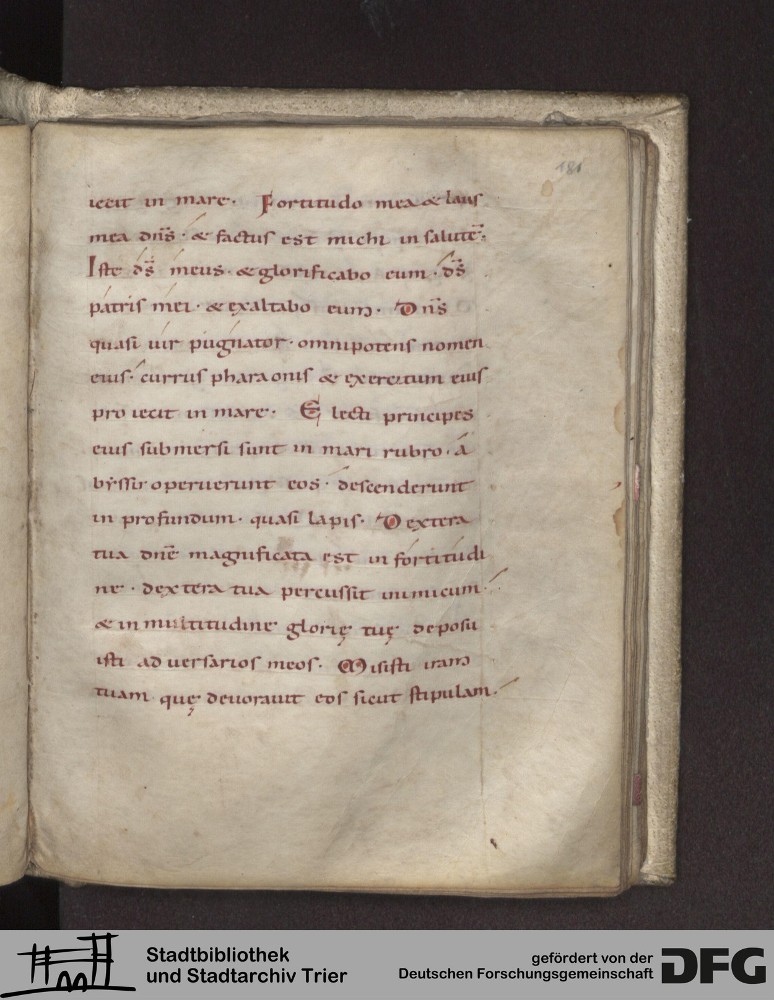 181
iecit in mare. Fortitudo mea & laus
mea dn̄s. & factus est michi in salutē.
Iste d̄s meus. & glorificabo eum. d̄s
patris mei. & exaltabo eum. Dn̄s
quasi uir pugnator. omnipotens nomen
eius. currus pharaonis & exercitum eius
proiecit in mare. Electi principes
eius submersi sunt in mari rubro. a
byssi operuerunt eos. descenderunt
in profundum. quasi lapis. Dextera
tua dn̄e magnificata est in fortitudi
ne. dextera tua percussit inimicum.
& in multitudine glorię tuę deposu
isti aduersarios meos. Misisti iram
tuam quę deuorauit eos sicut stipulam.
Stadtbibliothek
und Stadtarchiv Trier
gefördert von der
Deutschen Forschungsgemeinschaft
DFG